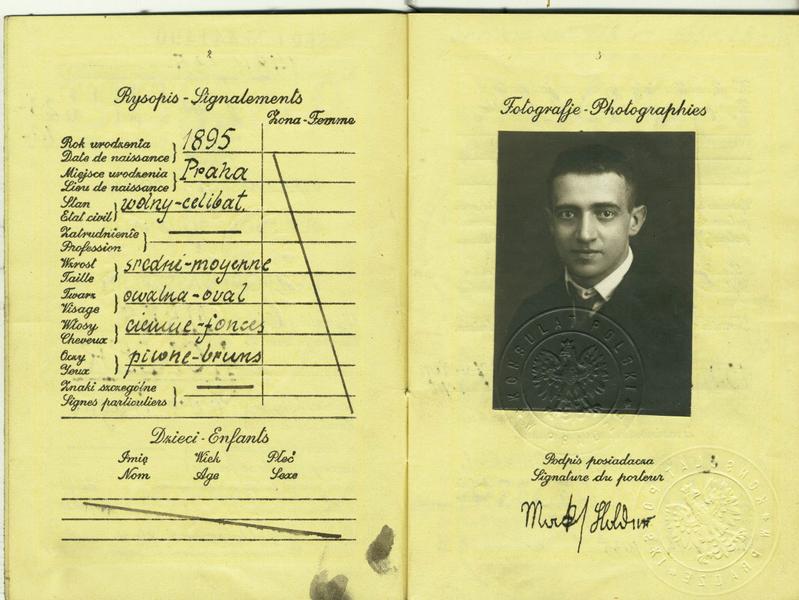 2
Rysopis - Signalements
Żona - Femme
Rok urodzenia
Date de naissance
1895
Miejsce urodzenia
Lieu de naissance
Praha
Stan
Etat civil
wolny-celibat.
Zatrudnienie
Profession
Wzrost
Taille
średni-moyenne
Twarz
Visage
owalna-oval
Włosy
Cheveux
ciemne-foncés
Oczy
Yeux
piwne-bruns
Znaki szczególne
Signes particuliers
Dzieci - Enfants
Imię Wiek Płeć
Nom Age Sexe
3
Fotografje - Photographies
KONSULAT POLSKI
Podpis posiadacza
Signature du porteur